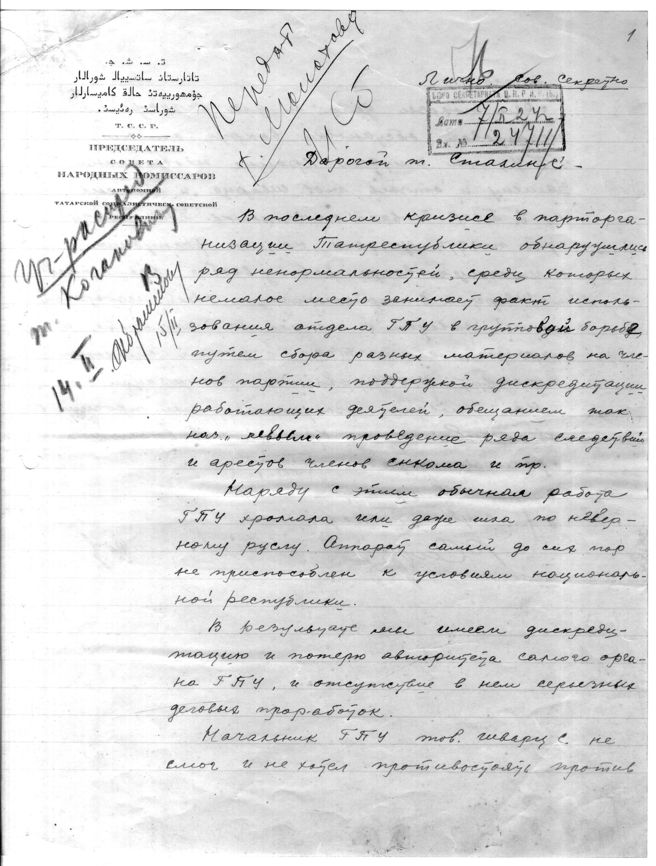 1
ت. س. ش. ج.
تاتارستان ساتسییال شورالار
جۇمھوريیەتئ حالق كاميسارلار
شوراسئ رەئیسئ.
Т. С. С. Р.
ПРЕДСЕДАТЕЛЬ
СОВЕТА
НАРОДНЫХ КОМИССАРОВ
АВТОНОМНОЙ
ТАТАРСКОЙ СОЦИАЛИСТИЧЕСК. СОВЕТСКОЙ
РЕСПУБЛИКИ
Передат
к Молотову
Лично Сов. Секретно
БЮРО СЕКРЕТАРИАТА Ц.К.Р.К.П.(б.)
Дата 7/II 24
Вх. № 247/11
Дорогой т. Сталин!
т. Коганович
14.II
15/II
В последнем кризисе в парторга-
низации Татреспублики обнаружились
ряд ненормальностей, среди которых
немалое место занимает факт исполь-
зования отдела ГПУ в групповой борьбе
путем сбора разных материалов на чле-
нов партии, поддержкой дискредитации
работающих деятелей, обещанием так
наз. „левым" проведение ряда следствий
и арестов членов снкома и пр.
Наряду с этим обычная работа
ГПУ хромала или даже шла по невер-
ному руслу. Аппарат самый до сих пор
не приспособлен к условиям националь-
ной республики.
В результате мы имеем дискреди-
тацию и потерю авторитета самого орга-
на ГПУ, и отсутствие в нем серьезных
деловых проработок.
Начальник ГПУ тов. Шварц с не
смог и не хотел противостоять против